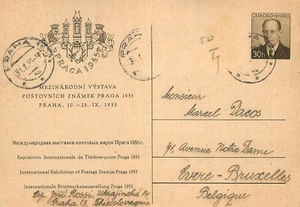 PRAHA
PRAGA 1955
PRAHA
ČESKOSLOVENSKO
30 h
MEZINÁRODNÍ VÝSTAVA
POŠTOVNÍCH ZNÁMEK PRAGA 1955
PRAHA, 10.–25. IX. 1955
Международная выставка почтовых марок Прага 1955 г.
Exposition Internationale de Timbres-poste Praga 1955
International Exhibition of Postage Stamps Praga 1955
Internationale Briefmarkenausstellung Praga 1955
Monsieur
Marcel Dacos
Avenue Notre Dame
Evere - Bruxelles
Belgique
Jiří Rossi, Ukrajinská
Praha 13